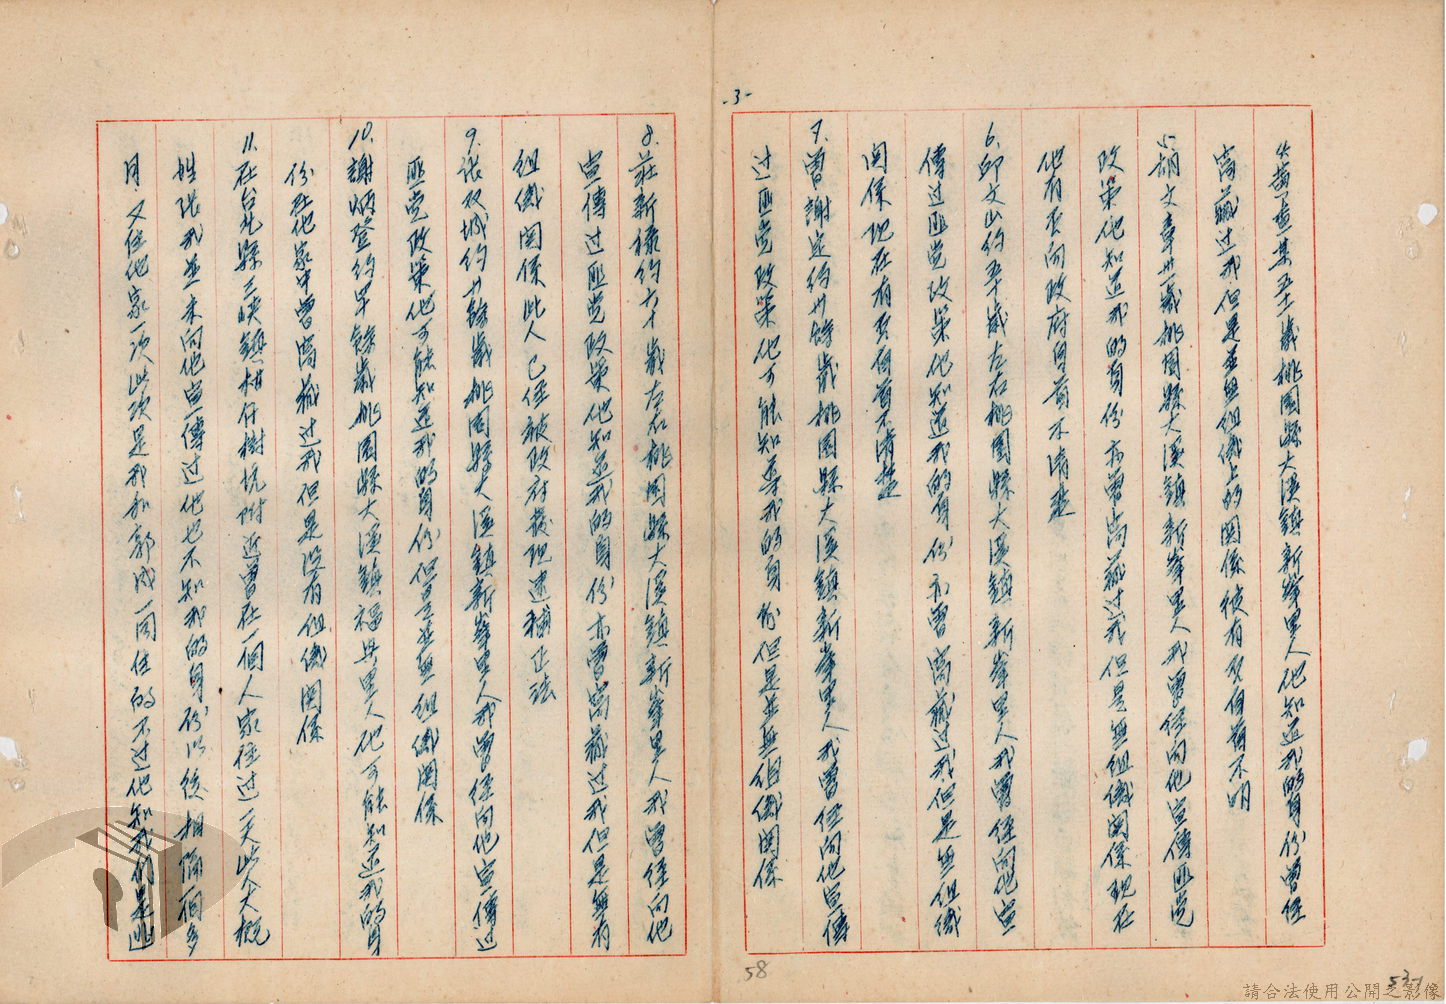 -3-
4. 黃查某五十一歲桃園縣大溪鎮新峯里人他知道我的身份曾經
窩藏过我但是並無組織上的関係彼有否自首不明
5. 胡文章卅一歲桃園縣大溪鎮新峯里人我曾経向他宣傳匪党
政策他知道我的身份亦曾窩藏过我但是無組織関係現在
他有否向政府自首不清楚
6. 邱文山約五十歲左右桃園縣大溪鎮新峯里人我曾経向他宣
傳过匪党政策他知道我的身份亦曾窩藏过我但是無組織
関係現在有否自首不清楚
7. 曾謝定約廿餘歲桃園縣大溪鎮新峯里人我曾経向他宣傳
过匪党政策他可能知道我的身份但是並無組織関係
8. 莊新祿約六十歲左右桃園縣大溪鎮新峯里人我曾経向他
宣傳过匪党政策他知道我的身份亦曾窩藏过我但是無有
組織関係此人已経被政府發現逮捕正法
9. 張双城約廿餘歲桃園縣大溪鎮新峯里人我曾経向他宣傳过
匪党政策他可能知道我的身份但是並無組織関係
10. 謝炳登約卅餘歲桃園縣大溪鎮福興里人他可能知道我的身
份在他家中曾窩藏过我但是没有組織関係
11. 在台北縣三峽鎮柑仔樹坑附近曾在一個人家住过一天此人大概
姓張我並未向他宣傳过他也不知我的身份以後相隔一個多
月又住他家一次此次是我和郭成一同住的不过他知我们是逃
58
53-1
請合法使用公開之影像